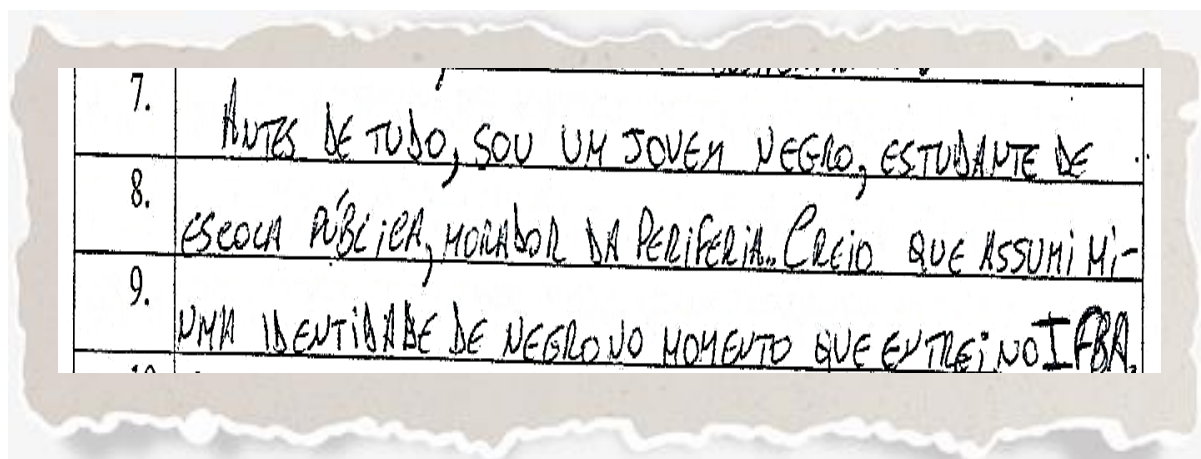 7. ANTES DE TUDO, SOU UM JOVEM NEGRO, ESTUDANTE DE
8. ESCOLA PÚBLICA, MORADOR DA PERIFERIA. CREIO QUE ASSUMI MI-
9. NHA IDENTIDADE DE NEGRO NO MOMENTO QUE ENTREI NO IFBA.